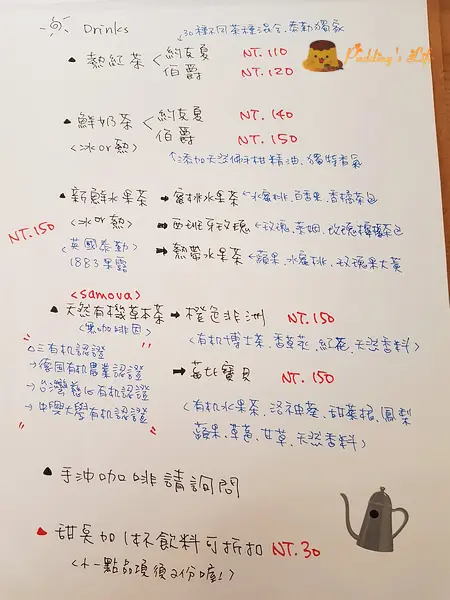 30種不同茶種混合,泰勒獨家
Drinks
熱紅茶 < 約克夏 NT.110
伯爵 NT.120
Pudding's Life
鮮奶茶 < 約克夏 NT.140
<冰or熱> 伯爵 NT.150
添加天然佛手柑精油,獨特香氣
新鮮水果茶 → 蜜桃水果茶 <水蜜桃、百香果、香橙茶包
NT.150 <冰or熱> → 西班牙玫瑰 <玫瑰、茶包
<英國泰勒> → 熱帶水果茶 <蘋果、水蜜桃、玫瑰果大薈
1883果露
<samova>
天然有機草本茶 → 橙色非洲 NT.150
<無咖啡因> <有机博士茶、香草莢、紅花、天然香料>
三有机認證
→ 德國有机農業認證 → 莓比寶貝 NT.150
→ 台灣慈心有机認證
→ 中興大學有机認證 <有机水果茶、洛神葵、甜菜根、鳳梨
蘋果、草莓、甘草、天然香料>
手沖咖啡請詢問
甜點加1杯飲料可折扣 NT.30
<1份一點品項便2份喔!>